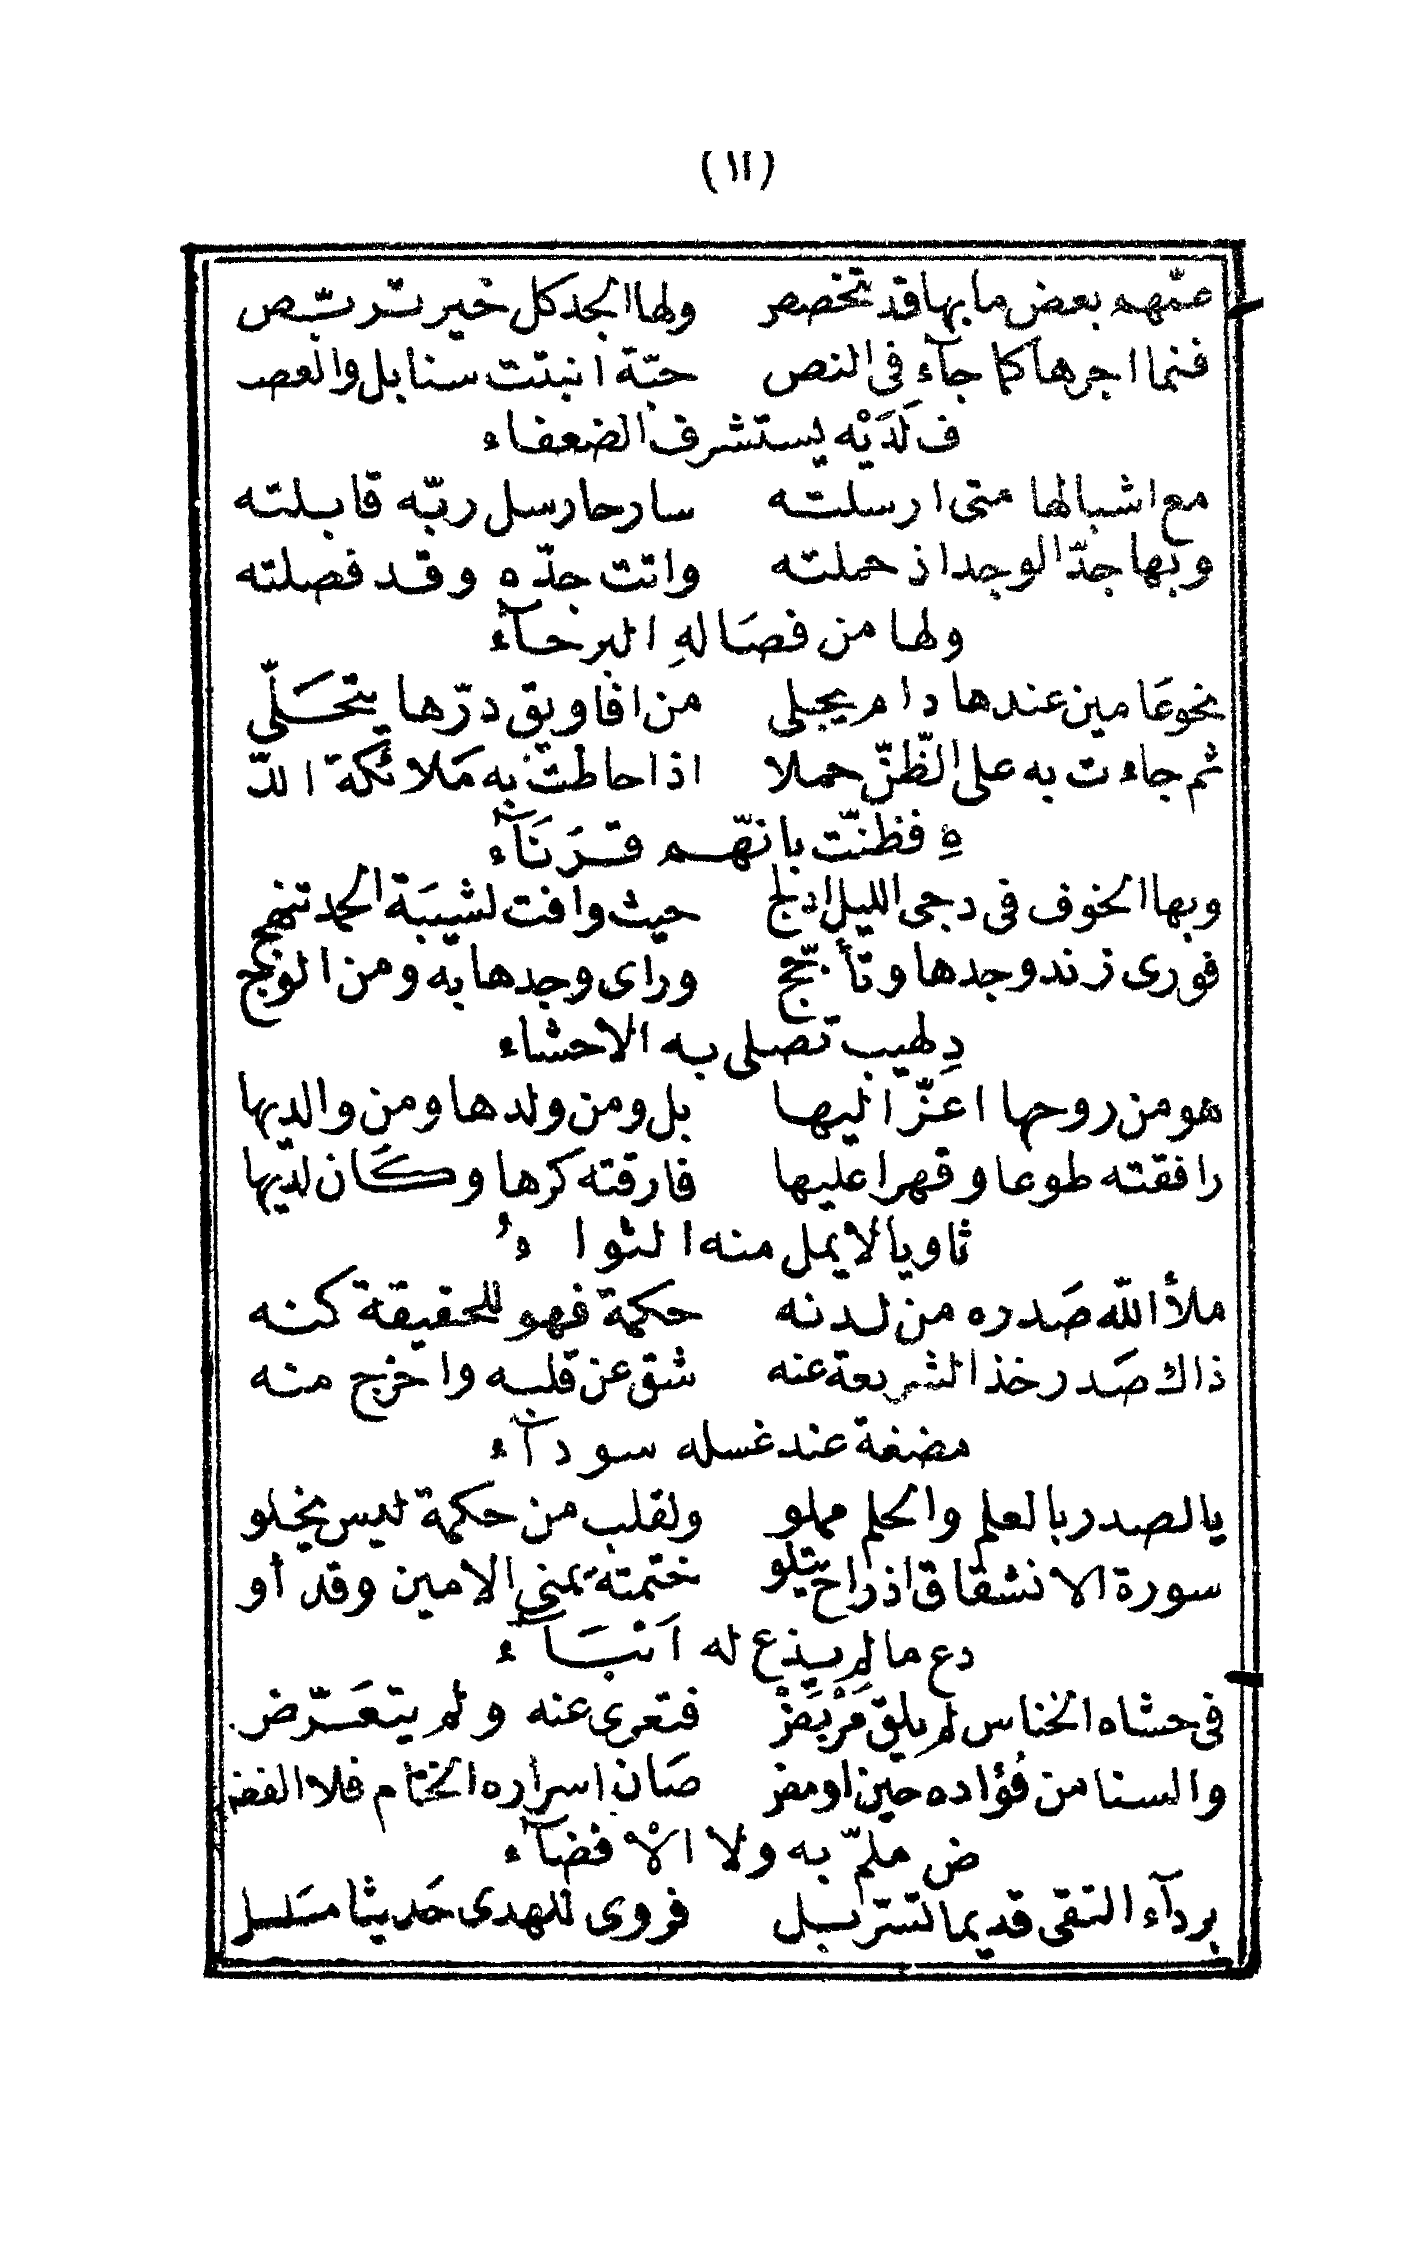 (١٢)
ضمّهم بعض ما بها قد تخصص ولها الجد كل خير تربّص
فنما اجرها كما جآء فى النص حبّة انبتت سنابل والعصـ
ف لَدَيْه يستشرف الضعفاء
مع اشبالها متى ارسلته سارحا رسل ربّه قابلته
وبها جدّ الوجد اذ حملته واتت جدّه وقد فصلته
ولها من فصَالهِ البرحآء
نحوعَامين عندها دام يجبلى من افاويق درّها يتحَلّى
ثم جاءت به على الظّئرّ حملا اذا حاطت به مَلائكة اللّـ
ـهِ فظنّت بانهّم قرَنَآء
وبها الخوف فى دجى الليل ادلج حيث وافت لشيبَة الحمد تنهج
فورى زند وجدها وتأجّج وراى وجدها به ومن الوهج
دِ لهيب تصلى به الاحشاء
هو من روحها اعزّ اليها بل ومن ولدها ومن والديها
رافقته طوعا وقهرا عليها فارقته كرها وكَان لدّيها
ثاويا لايمل منه الثواءُ
ملأ اللّه صَدره من لدنه حكمة فهو للحقيقة كنه
ذاك صَدر خذ الشريعة عنه شق عن قلبه واخرج منه
مضغة عند غسله سودآء
يالصدر بالعلم والحلم مملو ولقلب من حكمة ليس يخلو
سورة الانشقاق اذ راح يتلو ختمته يمنى الامين وقد أو
دع مالم يذع له اَنْبَآء
فى حشاه الخناس لم يلق مَرْبَضْ فتعرى عنه ولم يتعَرّض
والسنا من فُؤاده حين اومض صَان اسراره الختام فلا الفضـ
ض ملمّ به ولا الاْفضآء
بردآء التقى قديما تسّربل فروى للهدى حَديثا مسَلسل